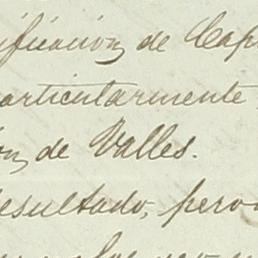 ificacion de Cap
articularmente
on de Valles.
esultado, pero